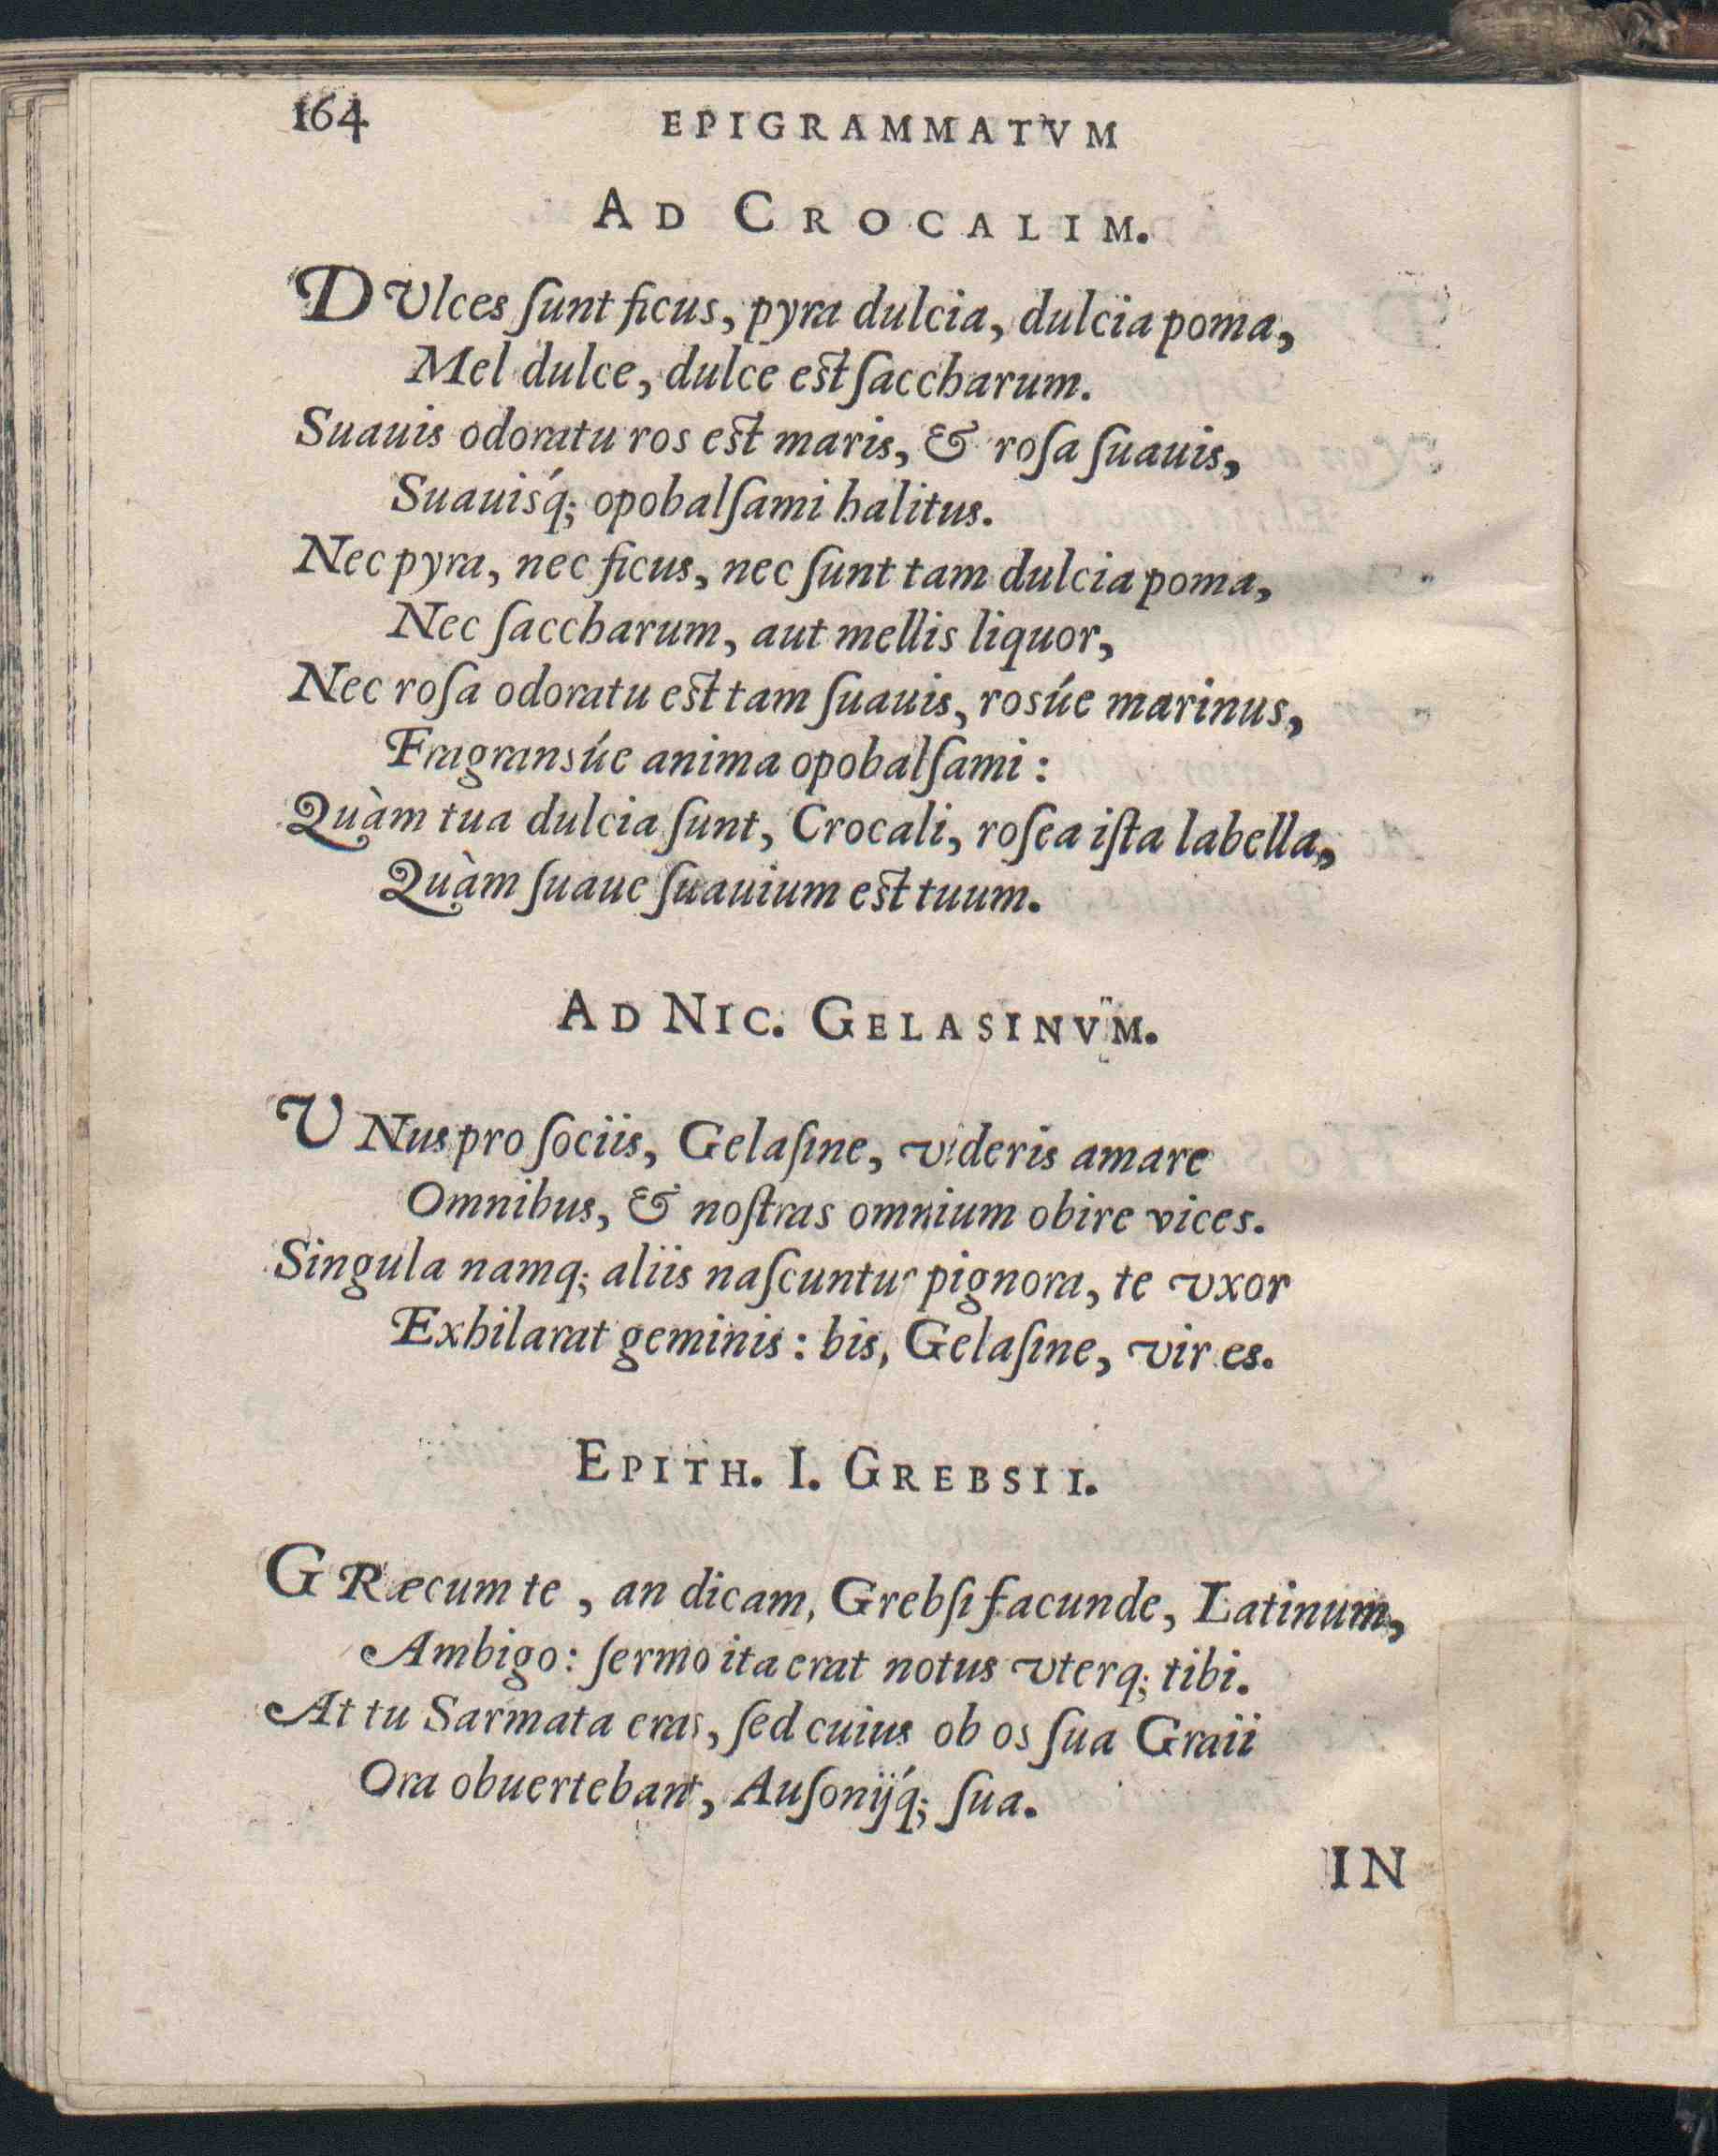 164 EPIGRAMMATVM
AD CROCALIM.
DVlces ſunt ficus, pyra dulcia, dulcia poma,
Mel dulce, dulce est ſaccharum.
Suauis odoratu ros est maris, & roſa ſuauis,
Suauisq́; opobalſami halitus.
Nec pyra, nec ficus, nec ſunt tam dulcia poma,
Nec ſaccharum, aut mellis liquor,
Nec roſa odoratu est tam ſuauis, rosúe marinus,
Fragransúe anima opobalſami:
Quàm tua dulcia ſunt, Crocali, roſea iſta labella,
Quàm ſuaue ſuauium est tuum.
AD NIC. GELASINVM.
VNus pro ſociis, Gelaſine, videris amare
Omnibus, & noſtras omnium obire vices.
Singula namq; aliis naſcuntur pignora, te vxor
Exhilarat geminis: bis, Gelaſine, vir es.
EPITH. I. GREBSII.
GRæcum te, an dicam, Grebſi facunde, Latinum,
Ambigo: ſermo ita erat notus vterq; tibi.
At tu Sarmata eras, ſed cuius ob os ſua Graii
Ora obuertebant, Auſonijq́; ſua.
IN